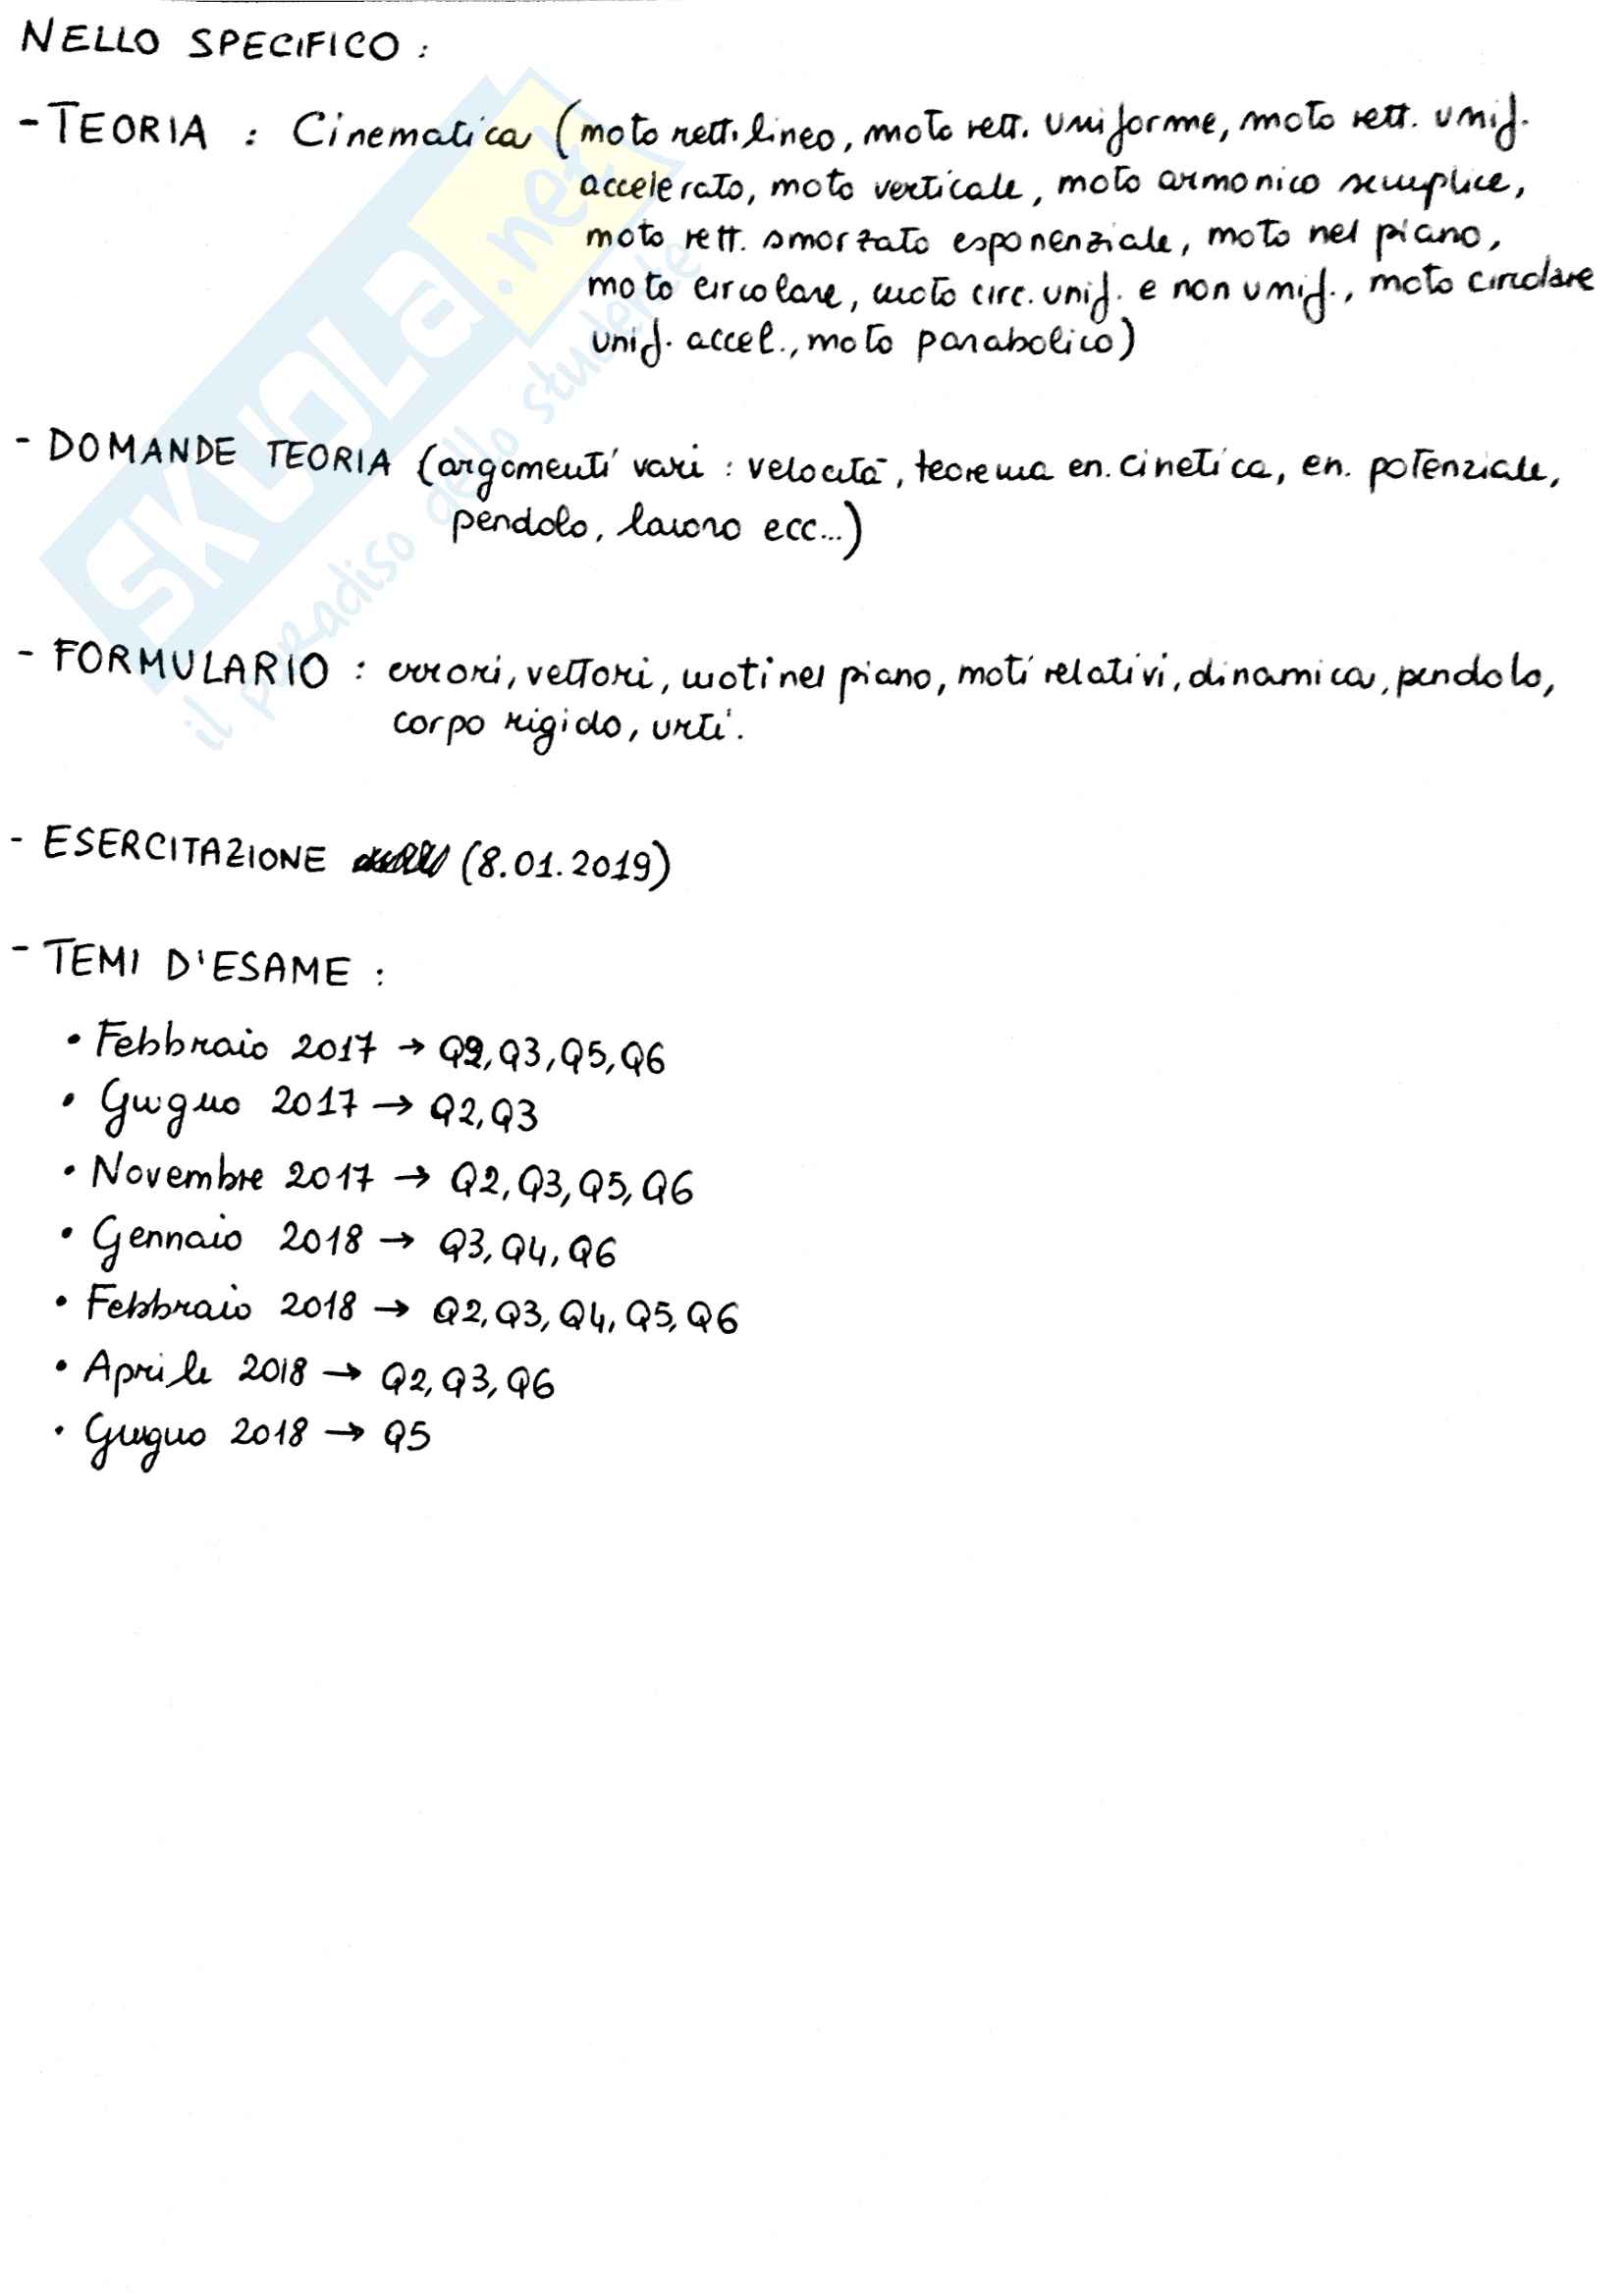 NELLO SPECIFICO :
- TEORIA : Cinematica (moto rettilineo, moto rett. uniforme, moto rett. unif.
accelerato, moto verticale, moto armonico semplice,
moto rett. smorzato esponenziale, moto nel piano,
moto circolare, moto circ. unif. e non unif., moto circolare
unif. accel., moto parabolico)
- DOMANDE TEORIA (argomenti vari : velocità, teorema en. cinetica, en. potenziale,
pendolo, lavoro ecc...)
- FORMULARIO : errori, vettori, moti nel piano, moti relativi, dinamica, pendolo,
corpo rigido, urti.
- ESERCITAZIONE (8.01.2019)
- TEMI D'ESAME :
• Febbraio 2017 → Q2, Q3, Q5, Q6
• Giugno 2017 → Q2, Q3
• Novembre 2017 → Q2, Q3, Q5, Q6
• Gennaio 2018 → Q3, Q4, Q6
• Febbraio 2018 → Q2, Q3, Q4, Q5, Q6
• Aprile 2018 → Q2, Q3, Q6
• Giugno 2018 → Q5
SKUOLA.net
il paradiso dello studente